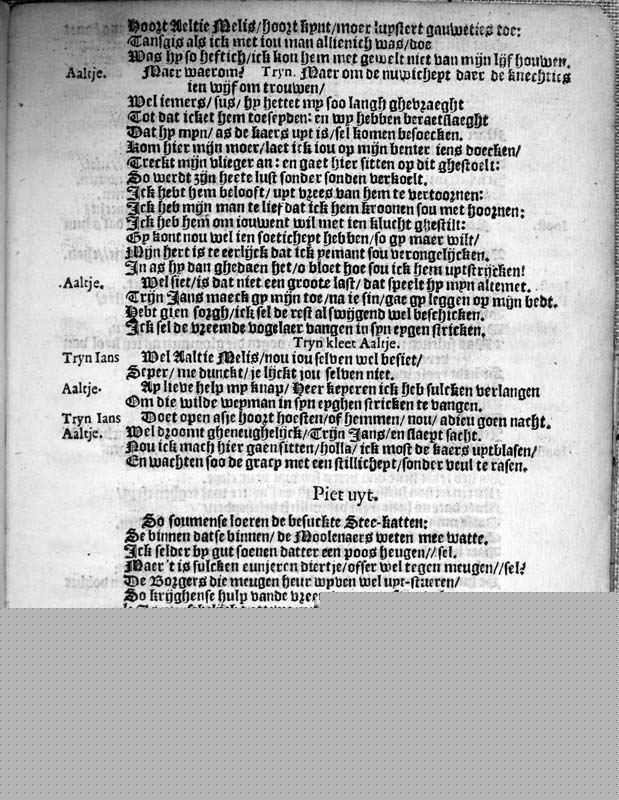 Hoort Aeltie Melis/hoort kynt/moer luystert gauweties toe:
Tansgis als ick met iou man allienich was/doe
Was hy so heftich/ick kon hem met gewelt niet van mijn lijf houwen.
Aaltje. Maer waerom? Tryn. Maer om de nuwichept daer de knechties
ien wijf om trouwen/
Wel iemers/sus/ hy hettet my soo langh ghevraeght
Tot dat icket hem toeseyden: en wy hebben beraetslaeght
Dat hy myn/ as de kaers uyt is/sel komen besoecken.
Kom hier mijn moer/laet ick iou op mijn benter iens doecken/
Treckt mijn vlieger an: en gaet hier sitten op dit ghestoelt:
So werdt zijn heete lust sonder sonden verkoelt.
Ick hebt hem belooft/ uyt vrees van hem te vertoornen:
Ick heb mijn man te lief dat ick hem kroonen sou met hoornen:
Ick heb hem om iouwent wil met ien klucht ghestilt:
Gy kont nou wel ien soetichept hebben/so gy maer wilt/
Mijn hert is te eerlijck dat ick yemant sou verongelijcken.
In as hy dan ghedaen het/o bloet hoe sou ick hem uytstrijcken!
Aaltje. Wel siet/is dat niet een groote last/ dat speelt hy myn altemet.
Trijn Jans maeck gy mijn toe/na ie sin/gae gy leggen op mijn bedt.
Hebt gien sorgh/ick sel de rest al swijgend wel beschicken.
Ick sel de vreemde vogelaer vangen in syn eygen stricken.
Tryn kleet Aaltje.
Tryn Ians Wel Aaltie Melis/nou iou selven wel besiet/
Seper/me dunckt/je lijckt jou selven niet.
Aaltje. Ay lieve help my knap/ Heer keyeren ick heb sulcken verlangen
Om die wilde weyman in syn eyghen stricken te vangen.
Tryn Ians Doet open asje hoort hoesten/of hemmen/ nou/ adieu goen nacht.
Aaltje. Wel droomt gheneughelijck/Trijn Jans/en slaept sacht.
Nou ick mach hier gaen sitten/holla/ ick most de kaers uytblasen/
En wachten soo de gracp met een stillichept/sonder veul te rasen.
Piet uyt.
So soumense loeren de besuckte Stee-katten:
Se binnen datse binnen/ de Moolenaers weten mee watte.
Ick selder by gut soenen datter een poos heugen//sel.
Maer 't is sulcken eunjeren diertje/offer wel tegen meugen//sel?
De Borgers die meugen heur wyven wel uyt-stueren/
So krijghense hulp vande vree